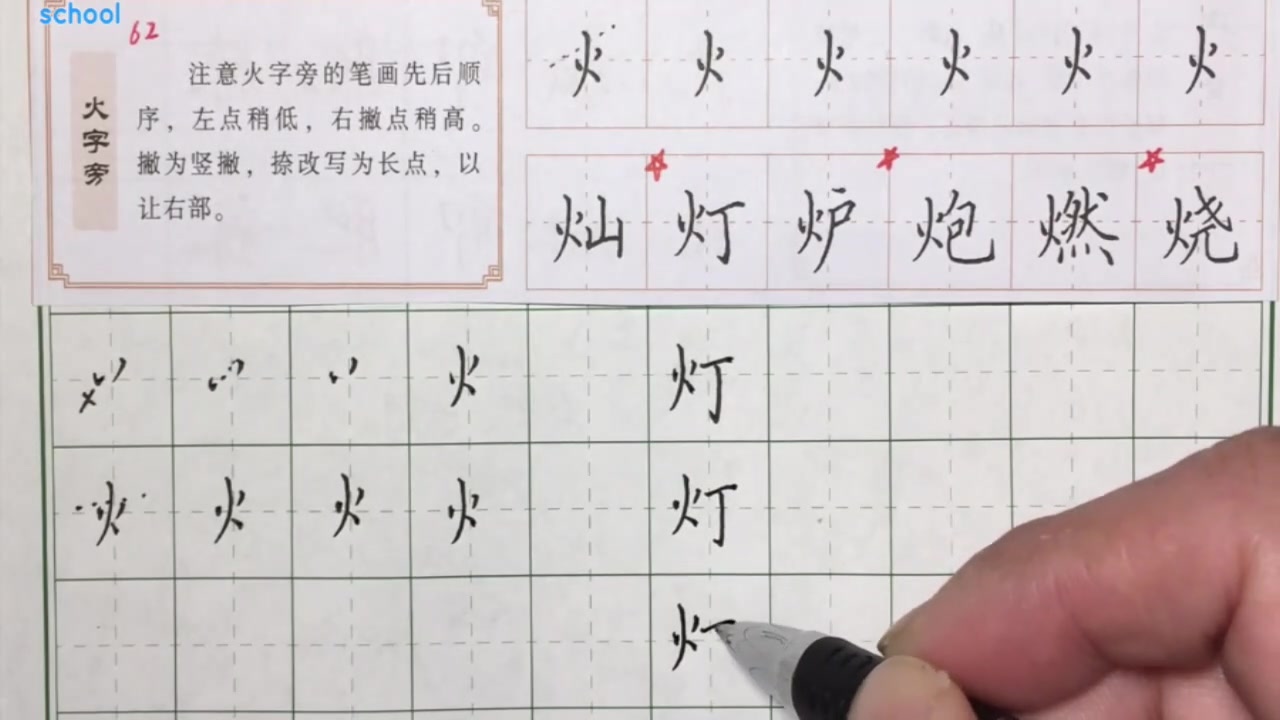 school
62
火字旁
注意火字旁的笔画先后顺
序，左点稍低，右撇点稍高。
撇为竖撇，捺改写为长点，以
让右部。
火 火 火 火 火 火
灿 灯 炉 炮 燃 烧
火 灯
火 火 火 火 灯